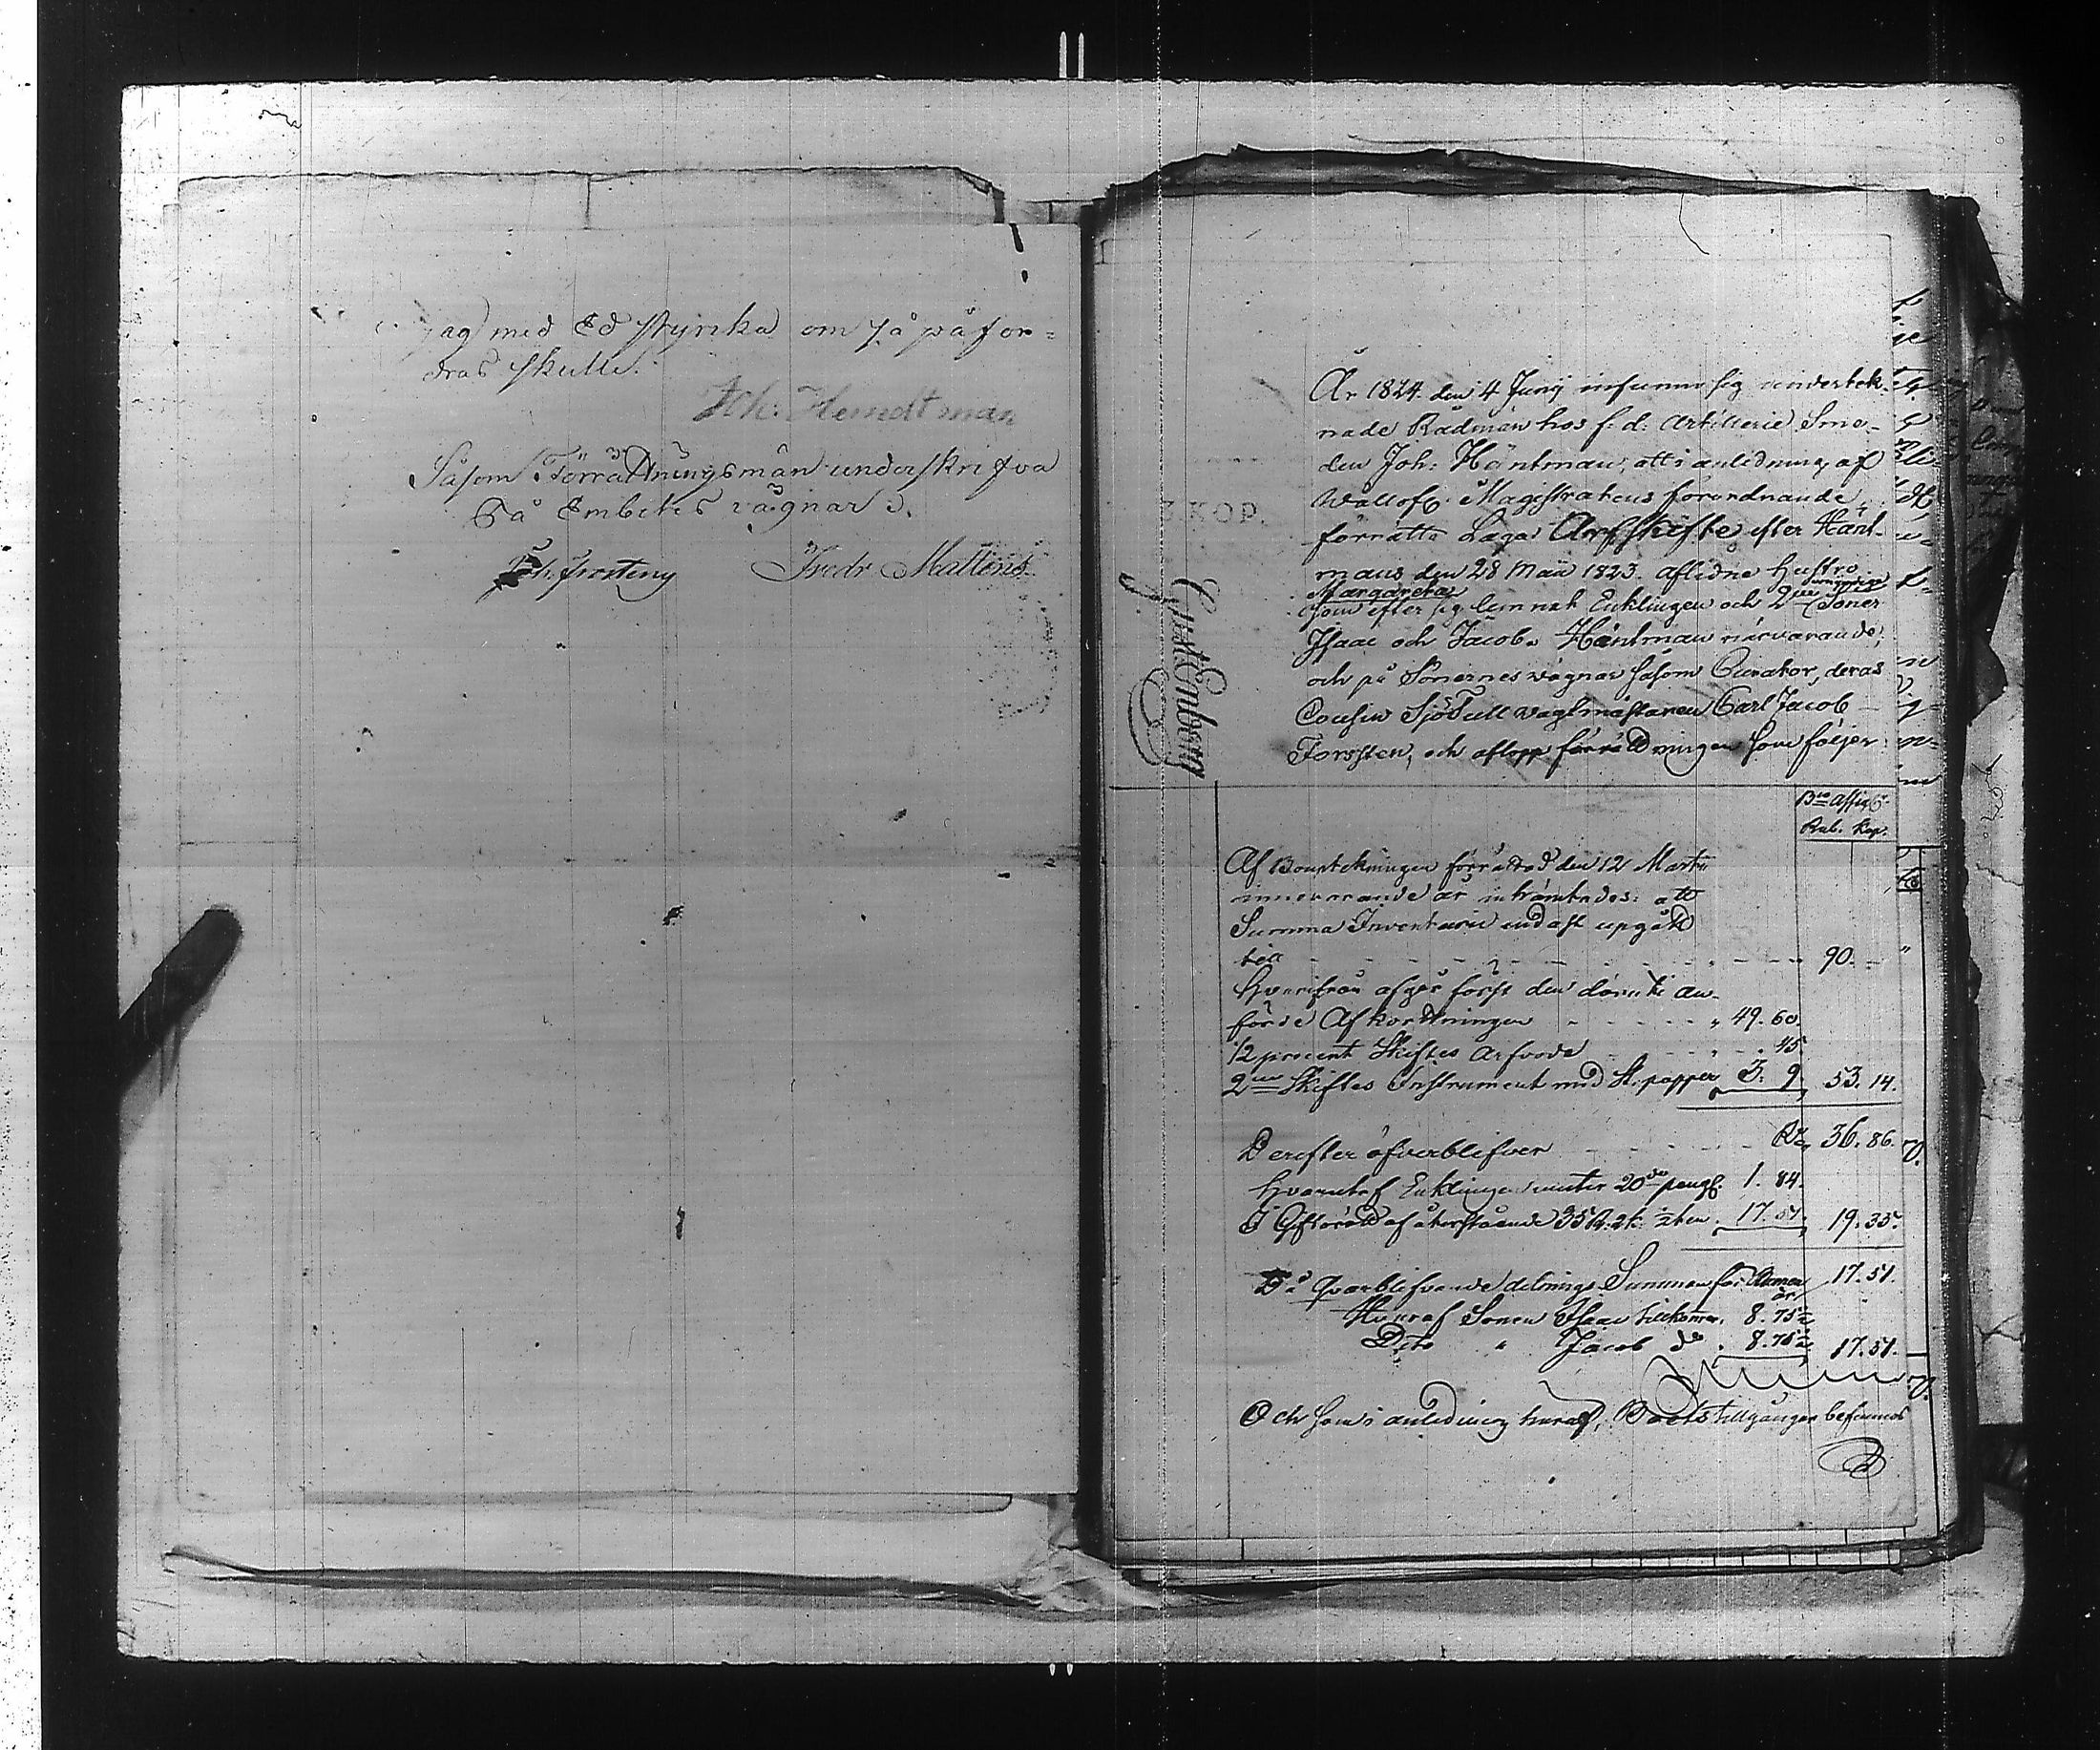 jag med Ed styrka om så påfor=
dras skulle.
Joh: Hemdtman
Såsom Förrättningsmän underskrifva
På Embetes vägnar
Joh. Frosteng Fredr Mattens
KOP.
Gust Enberg
År 1824. den 4 Junÿ infunno sig undertek-
nade Rådmän hos f. d. Artillerie Sme-
den Joh: Häntman, att i anledning af
Wällofl: Magistratens förordnande
förrätta Laga Arfskifte efter Hänt-
mans den 28 Maii 1823. aflidne Hustro
Margareta
som efter sig lemnat Enklingen och 2ne omyndige Söner
Isaac och Jacob Häntman närvarande,
och på Sönernes vägnar såsom Curator, deras
Cousin Sjötull vagtmästaren Carl Jacob
Forssten, och aflopp förrättningen som följer:
Bco Assig.
Rub. Kop.
Af Bouptekningen förrättad den 12 Martii
innevarande år inhämtades: att
Summa Inventarii endast upgått
till - - - - - - 90. -
Hvarifrån afgår först den däruti an-
förde Afkortningen - - - - " 49. 60.
1/2 procent Skiftes Arfvode - - - 45
2ne Skiftes Instrument med St. papper 3. 9. 53. 14.
Derefter öfverblifver - - - - R. 36. 86.
Hvarutaf Enklingen niuter 20de pengn. 1. 84.
I Giftorätt af återstående 35 R. 2 k. 1/2ten 17. 51. 19. 35.
Då qvarblifvande delnings Summan för Barnen är 17. 51.
Hvaraf Sonen Isaac tillkommer. 8. 75 1/2
Dito " Jacob do . 8. 75 1/2 17. 51.
Och som i anledning häraf, Boets tillgångar befinnes